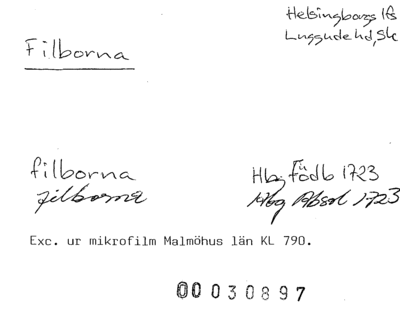 Helsingborgs lfs
Filborna
Luggude hd, Sk
filborna Hbg Födb 1723
filborna Hbg Absol 1723
Exc. ur mikrofilm Malmöhus län KL 790.
00030897